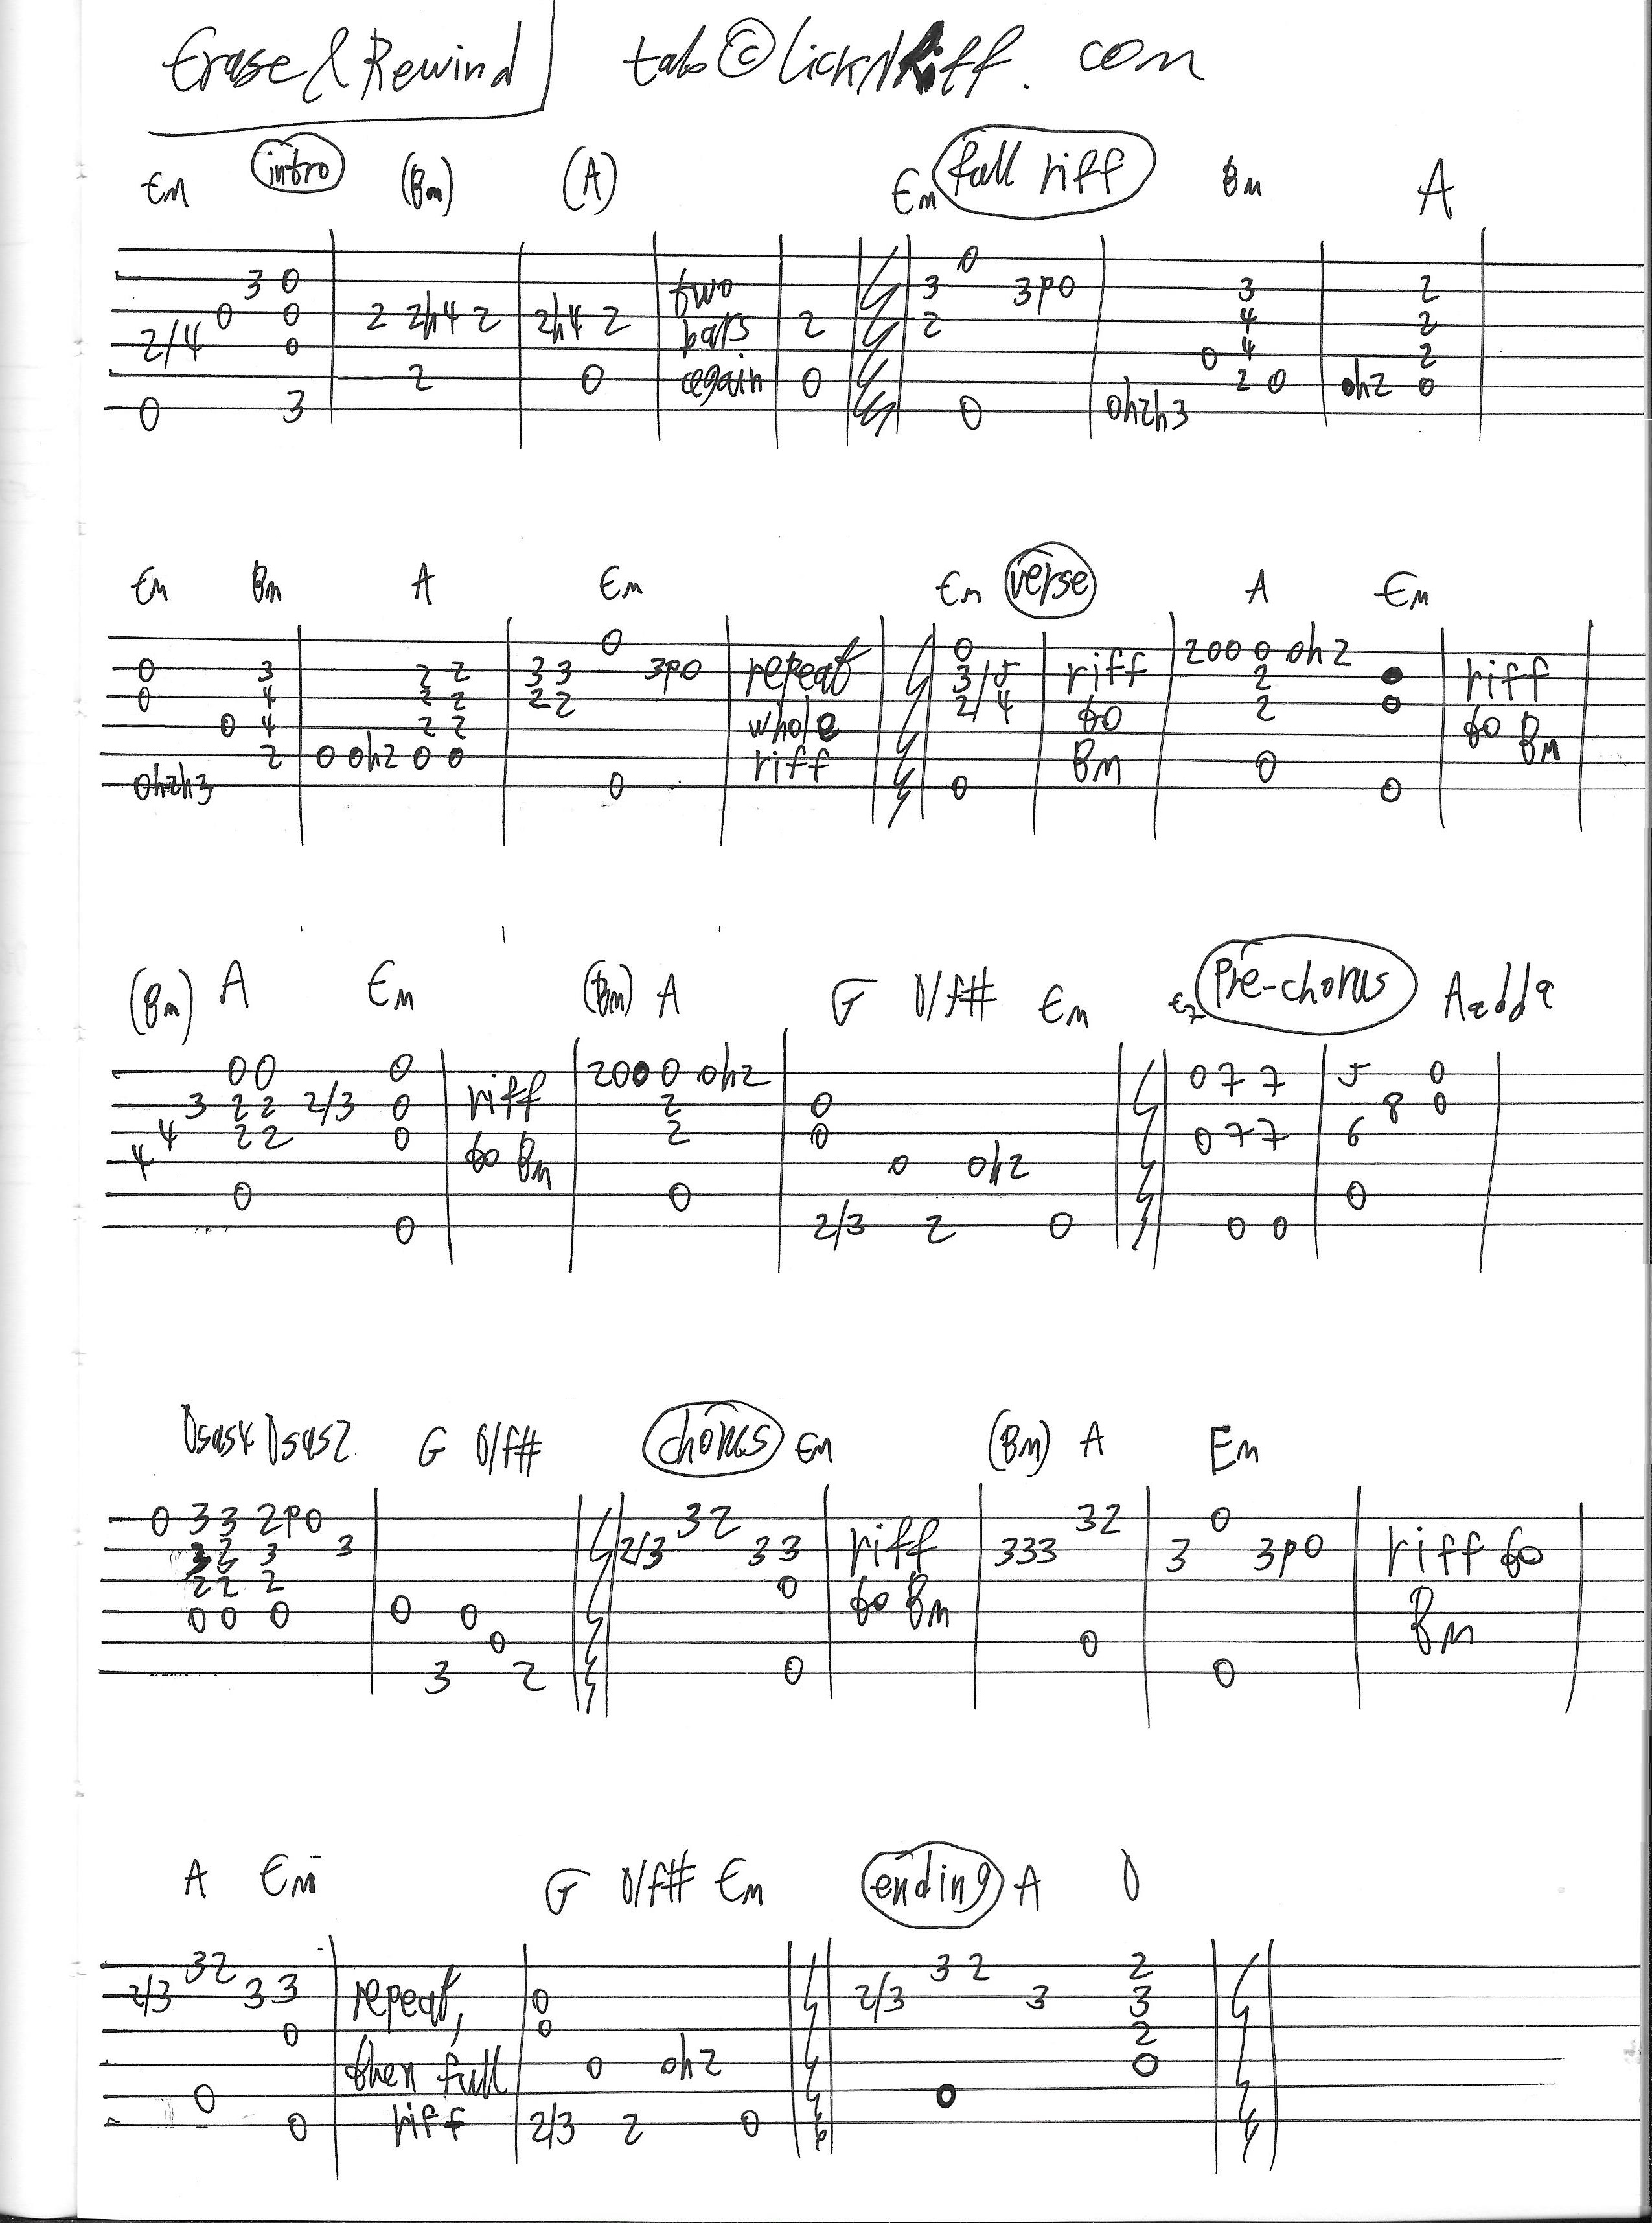 Erase & Rewind tab © lickNRiff.com
Em intro (Bm) (A) Em full riff Bm A
0
3 0 two 3 3p0 3 2
0 0 2 2h4 2 2h4 2 bars 2 2 4 2
2/4 0 0 4 2
2 0 again 0 2 0 0h2 0
0 3 0 0h2h3
Em Bm A Em Em verse A Em
0 0 2 0 0 0 0h2
0 3 2 2 3 3 3p0 repeat 3/5 riff 2 riff
0 4 2 2 2 2 2/4 2 0
0 4 2 2 whole to to Bm
2 0 0h2 0 0 riff Bm 0
0h2h3 0 0 0
(Bm) A Em (Bm) A G D/F# Em E7 Pre-chorus Aadd9
0 0 0 2 0 0 0 0h2 0 7 7 5 0
3 2 2 2/3 0 riff 2 0 8 0
4 2 2 0 2 0 0 7 7 6
4 to Bm 0 0h2
0 0 0
0 2/3 2 0 0 0
Dsus4 Dsus2 G D/F# chorus Em (Bm) A Em
0 3 3 2p0 3 2 3 2 0
3 3 3 3 2/3 3 3 riff 3 3 3 3 3p0 riff to
2 2 2 0 to Bm
0 0 0 0 0 Bm
0 0
3 2 0 0
A Em G D/F# Em ending A D
3 2 3 2 2
2/3 3 3 repeat, 0 2/3 3 3
0 0 2
then full 0 0h2 0
0 0
0 riff 2/3 2 0